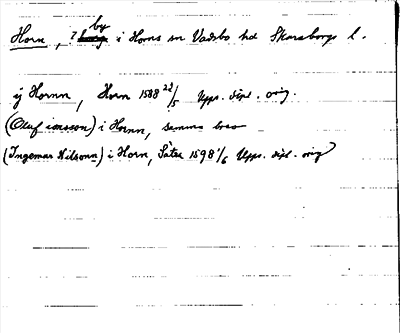 Horn, by i Horns sn Vadsbo hd Skaraborgs l.
ij Hornn, Horn 1588 22/5 Upps. dipl. orig.
(Oluf ionsson) i Hornn, samma brev
(Ingemar Nilsonn) i Horn, Säter 1598 1/6 Upps. dipl. orig